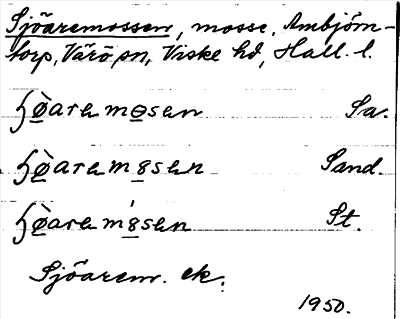 Sjöaremossen, mosse, Ambjörn-
torp, Värö sn, Viske hd, Hall. l.
ɧø̀arəmosən Sa.
ɧø̀arəm8sən Sand.
ɧø̀arəm8sən St.
Sjöarem. ek.
1950.